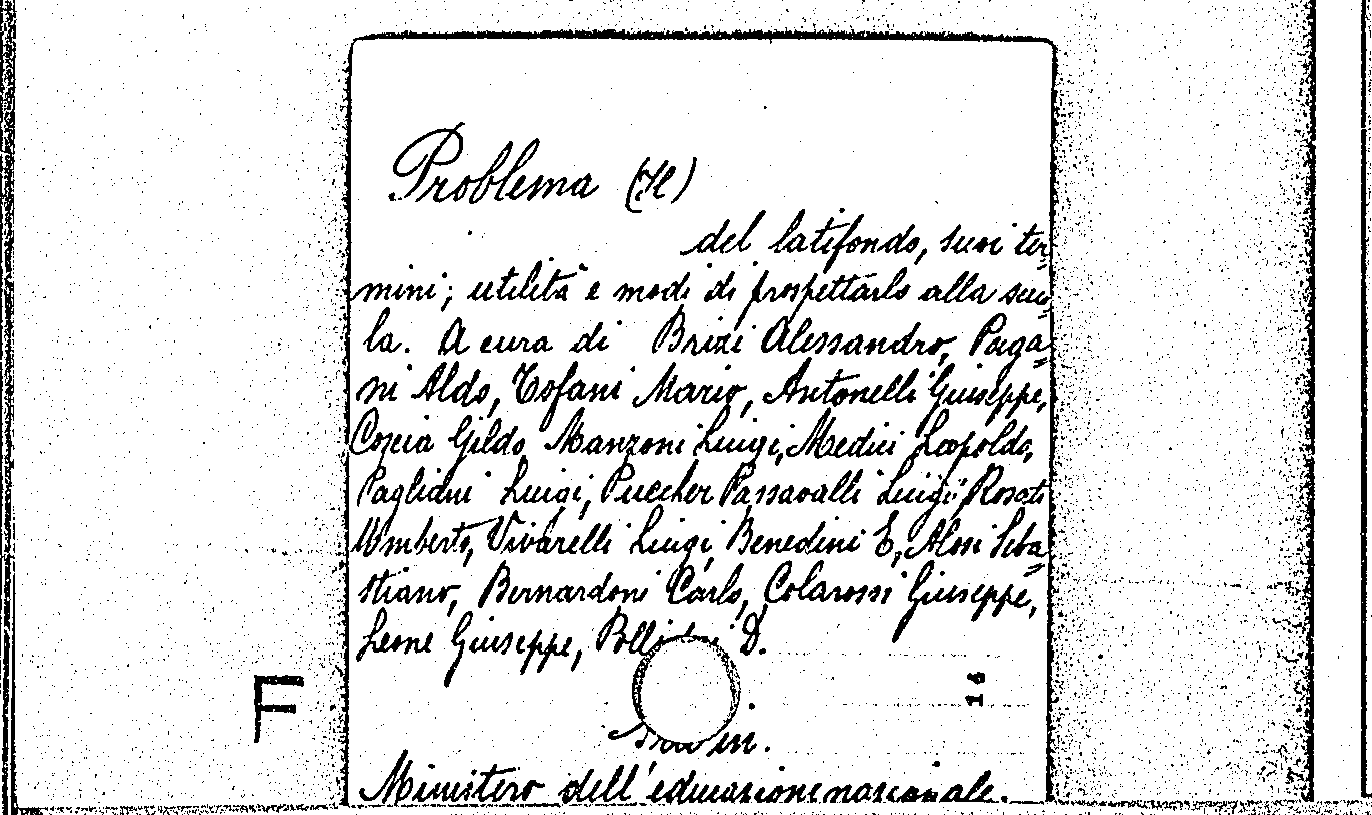 Problema (Il)
del latifondo, suoi ter=
mini; utilità e modi di prospettarlo alla scuo=
la. A cura di Brizi Alessandro, Paga=
ni Aldo, Tofani Mario, Antonelli Giuseppe,
Coscia Gildo, Manzoni Luigi, Medici Leopoldo,
Pagliani Luigi, Puecher Passavalli Luigi, Rosati
Umberto, Vivarelli Luigi, Benedini E, Alosi Seba=
stiano, Bernardoni Carlo, Colarossi Giuseppe,
Leone Giuseppe, D.
16
F
in.
Ministero dell'educazione nazionale.